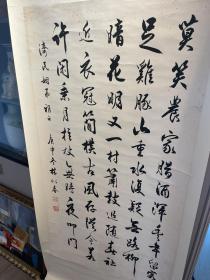 莫笑農家腊酒渾丰年留客
足雞豚山重水複疑無路柳
暗花明又一村簫鼓追隨春社
近衣冠簡樸古風存從今若
許閑乘月拄杖無時夜叩門
濟民 庚申冬林